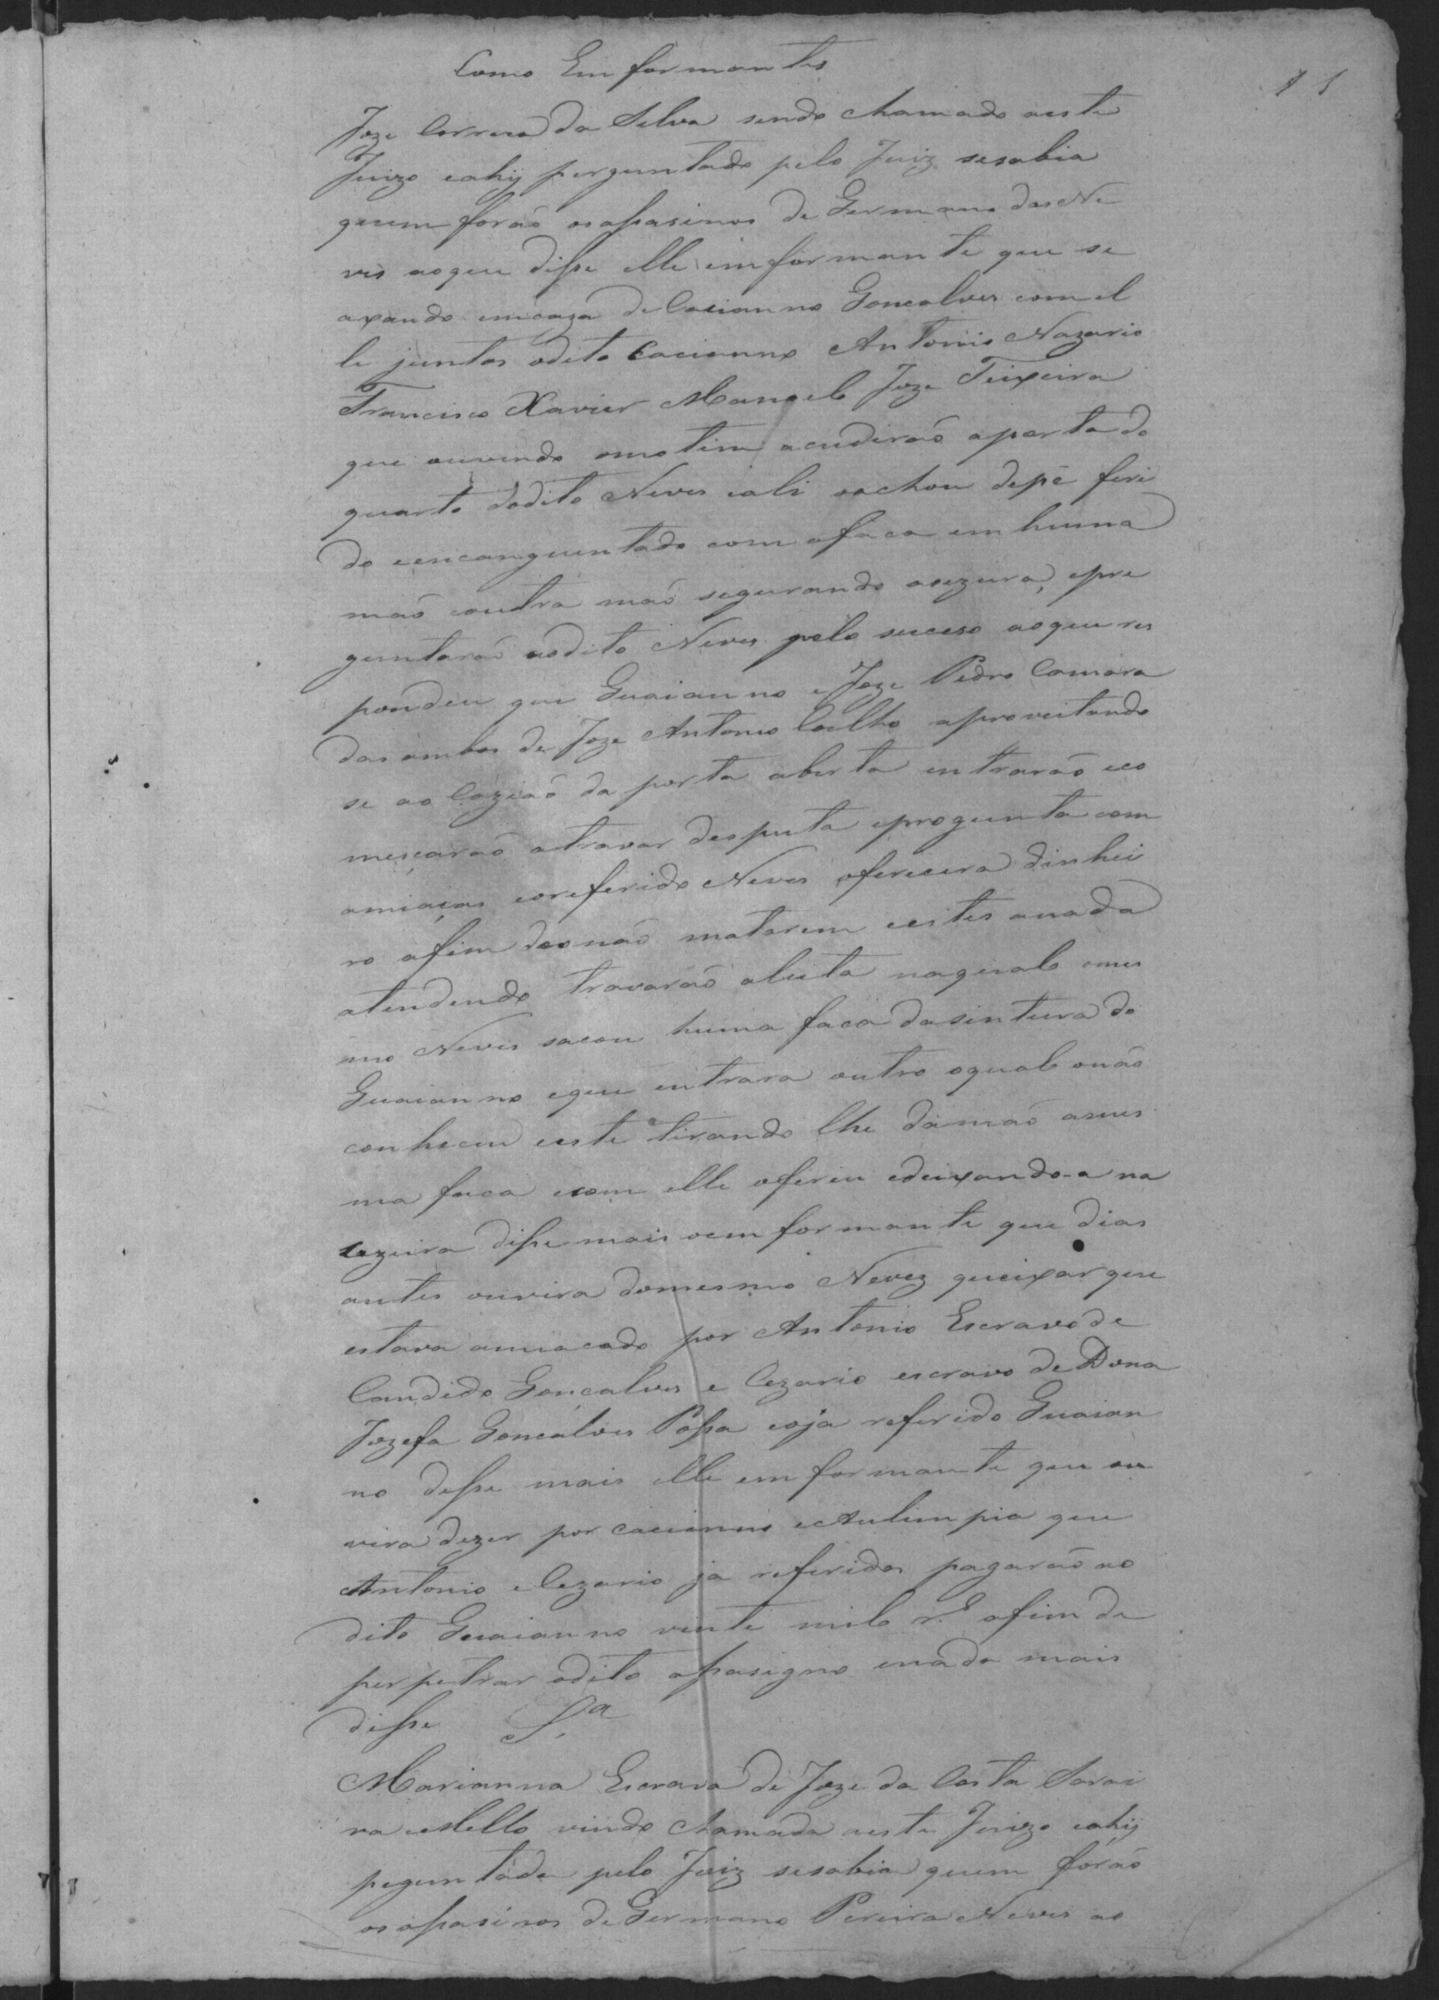 Como Emformantes
15
Joze Correia da Silva sendo chamado neste
Juizo eahij perguntado pelo Juiz sesabia
quem forão osaßasinos de Germano das Ne
ves aoque diße elle imformante que se
axando emcaza de Cacianno Goncalves com el
le juntos odito Cacianno Antonio Nazario
Francisco Xavier Manoel Joze Teixeira
que ouvindo omotim acudirão aporta do
quarto dodito Neves eali oachou depé feri
do eencanguentado com afaca em huma
mão eoutra mão segurando asezura, epre
guntarão aodito Neves pelo suceso aoque res
pondeu que Guaianno e Joze Pedro Camara
das ambos de Joze Antonio Coelho aproveitando
se ao Cazião da porta aberta entrarão eco
meçarão atravar desputa eprogunta com
amiaças eoreferido Neves oferecera dinhei
ro afim deonão matarem eestes anada
atendendo travarão aluta naqualo omes
mo Neves sacou huma faca dasintura do
Guaianno eque entrara outro oqualo onão
conheceu eeste tirando lhe damão ames
ma faca ecom elle oferiu edeixando-a na
sezura diße mais oemformante que dias
antes ouvira domesmo Nevez queixar que
estava amiacado por Antonio Escravo de
Candido Gonçalves e Cezario escravo de Dona
Jozefa Goncalves Paßa eoja referido Guaian
no deße mais elle emformante que ou
vira dezer por Cacianno eAulimpia que
Antonio e Cezario ja referidos pagarão ao
dito Guaianno vinte milo r.s afim de
perpetrar odito aßasigno enada mais
diße S.a
Marianna Escrava de Joze da Costa Sarai
va eMello vindo chamada neste Juizo eahij
peguntada pelo Juiz sesabia quem forão
osaßasinos de Germano Pereira Neves ao